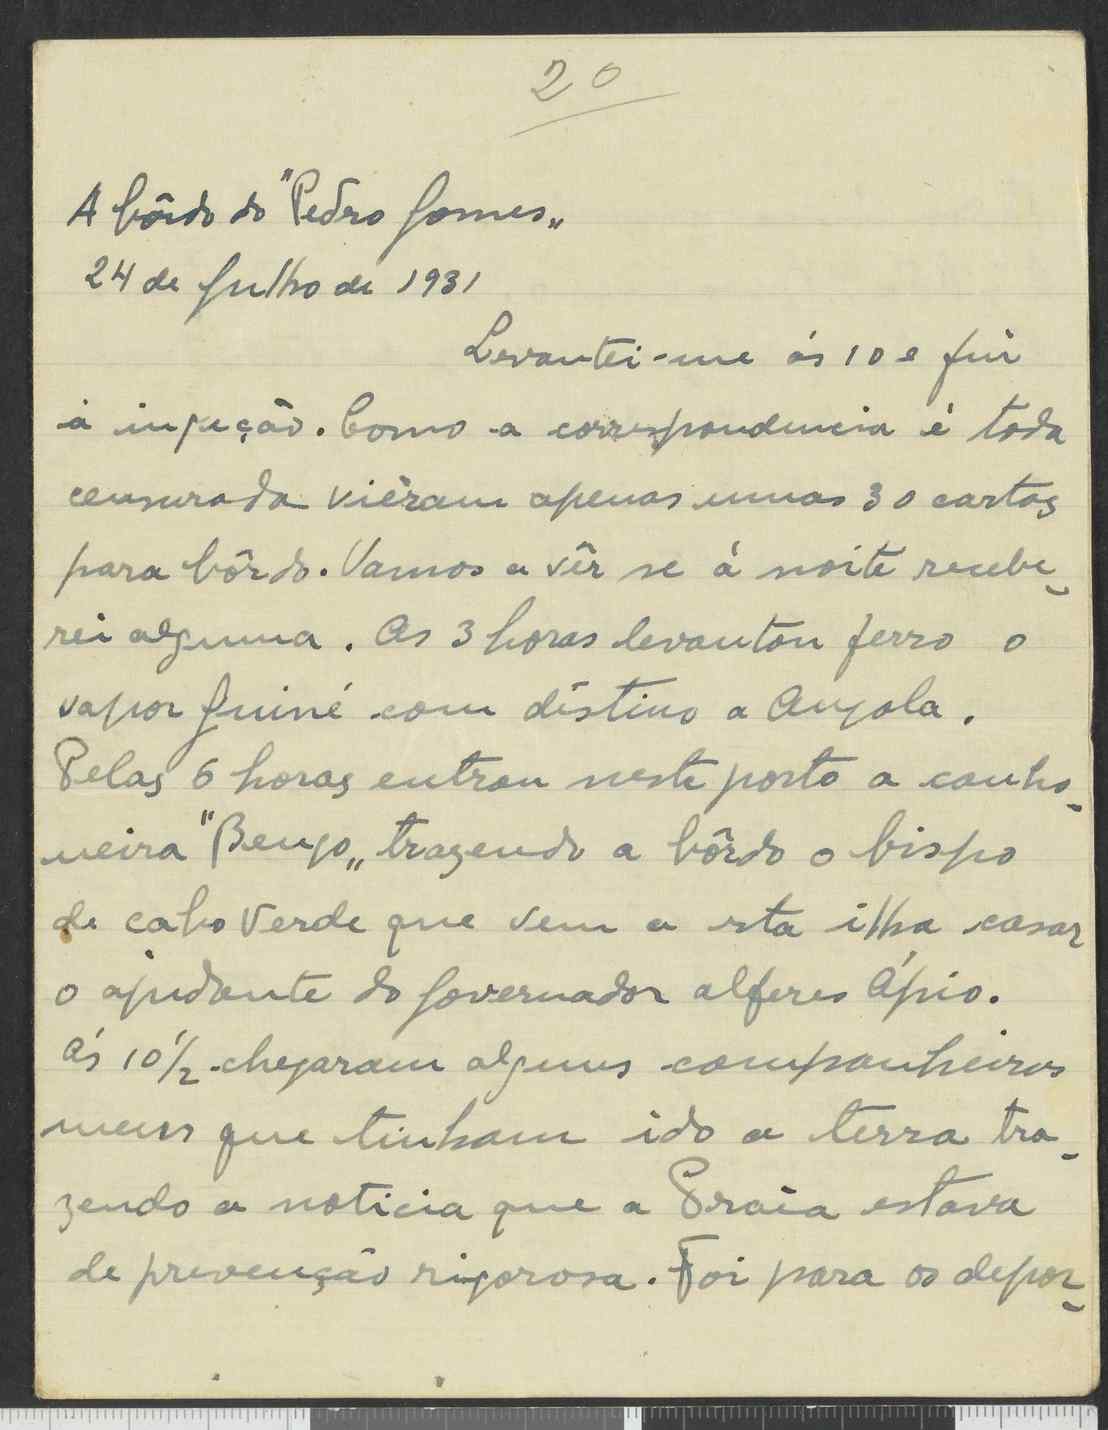 20
A bôrdo do "Pedro Gomes"
24 de Julho de 1931
Levantei-me ás 10 e fui
á injeção. Como a correspondencia é toda
censurada viéram apenas umas 30 cartas
para bôrdo. Vamos a vêr se á noite recebe-
rei alguma. As 3 horas levantou ferro o
vapor Guiné com déstino a Angola.
Pelas 6 horas entrou neste porto a canho-
neira "Bengo" trazendo a bôrdo o bispo
de Cabo Verde que vem a esta ilha casar
o ajudante do Governador alferes Ápio.
Ás 10 1/2 chegaram alguns companheiros
meus que tinham ido a terra tra-
zendo a noticia que a Praia estava
de prevenção rigorosa. Foi para os depor-